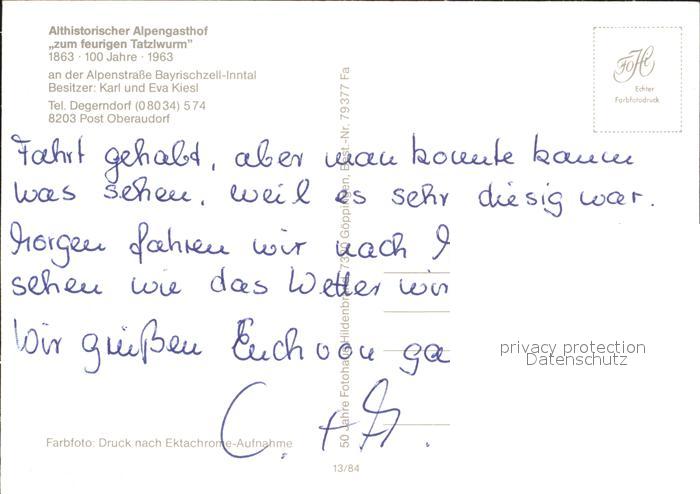 Althistorischer Alpengasthof
„zum feurigen Tatzlwurm"
1863 · 100 Jahre · 1963
an der Alpenstraße Bayrischzell-Inntal
Besitzer: Karl und Eva Kiesl
Tel. Degerndorf (0 80 34) 5 74
8203 Post Oberaudorf
FoHi
Echter
Farbfotodruck
Fahrt gehabt, aber man konnte kaum
was sehen, weil es sehr diesig war.
Morgen fahren wir nach
sehen wie das Wetter wir
Wir grüßen Euch von ga
C. + H.
50 Jahre Fotohaus Hildenbrand, 7320 Göppingen, Best.-Nr. 79377 Fa
privacy protection
Datenschutz
Farbfoto: Druck nach Ektachrome-Aufnahme
13/84